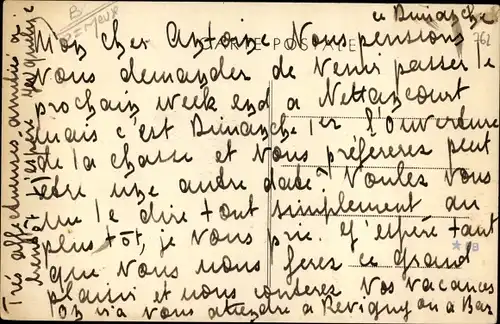 ce Dimanche
Mon cher Antoine Nous pensions
CARTE POSTALE
762
vous demander de venir passer le
prochain week end a Nettancourt
mais c'est Dimanche 1er l'ouverture
de la chasse et vous prefererez peut
etre une autre date. Voulez vous
me le dire tout simplement au
plus tôt, je vous prie. J'espére tant
que vous nous ferez ce grand
plaisir et nous conterez vos vacances
On ira vous attendre a Revigny ou a Bar
Trés affectueusement a
bientôt j'espère
B